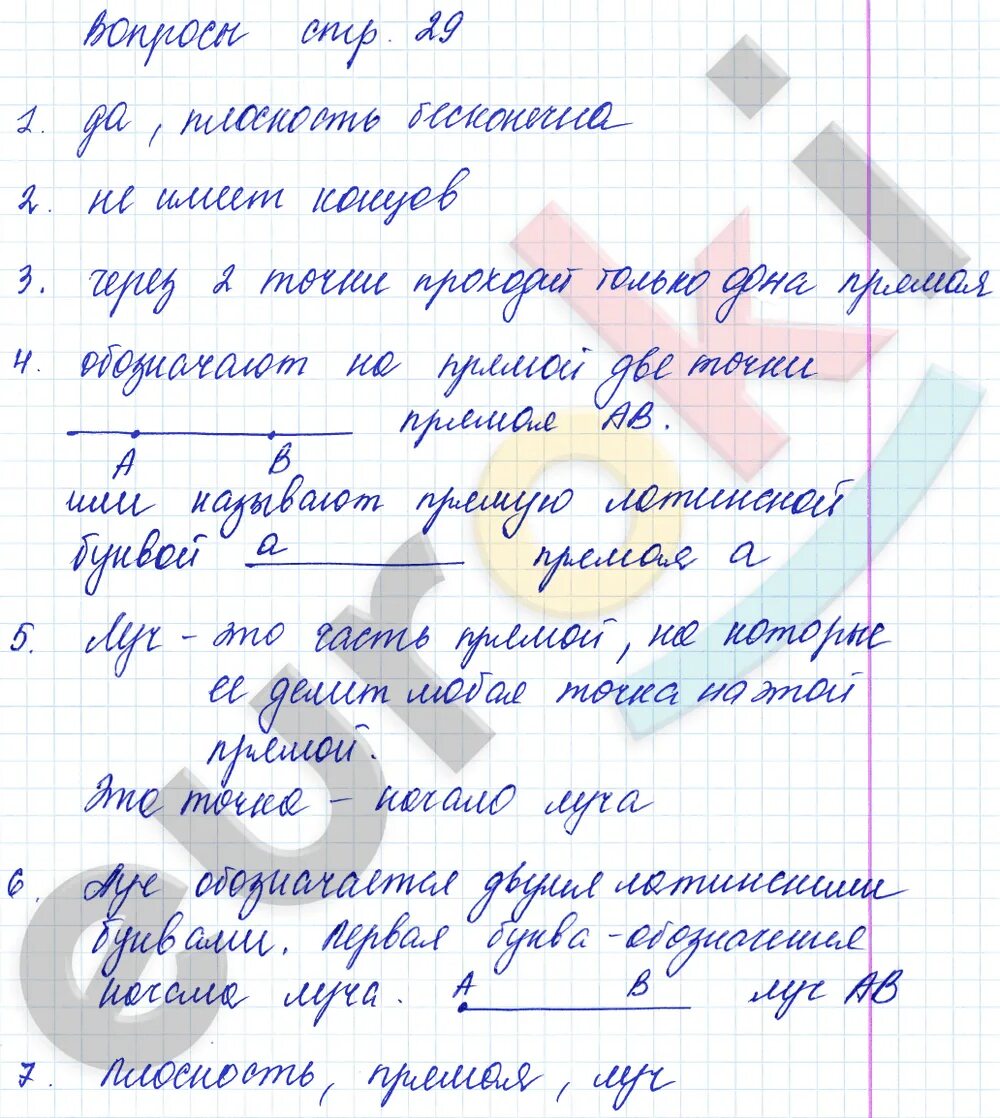 Вопросы стр. 29
1. да, плоскость бесконечна
2. не имеет концов
3. через 2 точки проходит только одна прямая
4. обозначают на прямой две точки
прямая АВ.
А В
или называют прямую латинской
буквой а прямая а
5. Луч - это часть прямой, на которые
ее делит любая точка на этой
прямой.
Это точка - начало луча
6. Луч обозначается двумя латинскими
буквами. Первая буква - обозначения
начала луча. А В луч АВ
7. Плоскость, прямая, луч
euroki